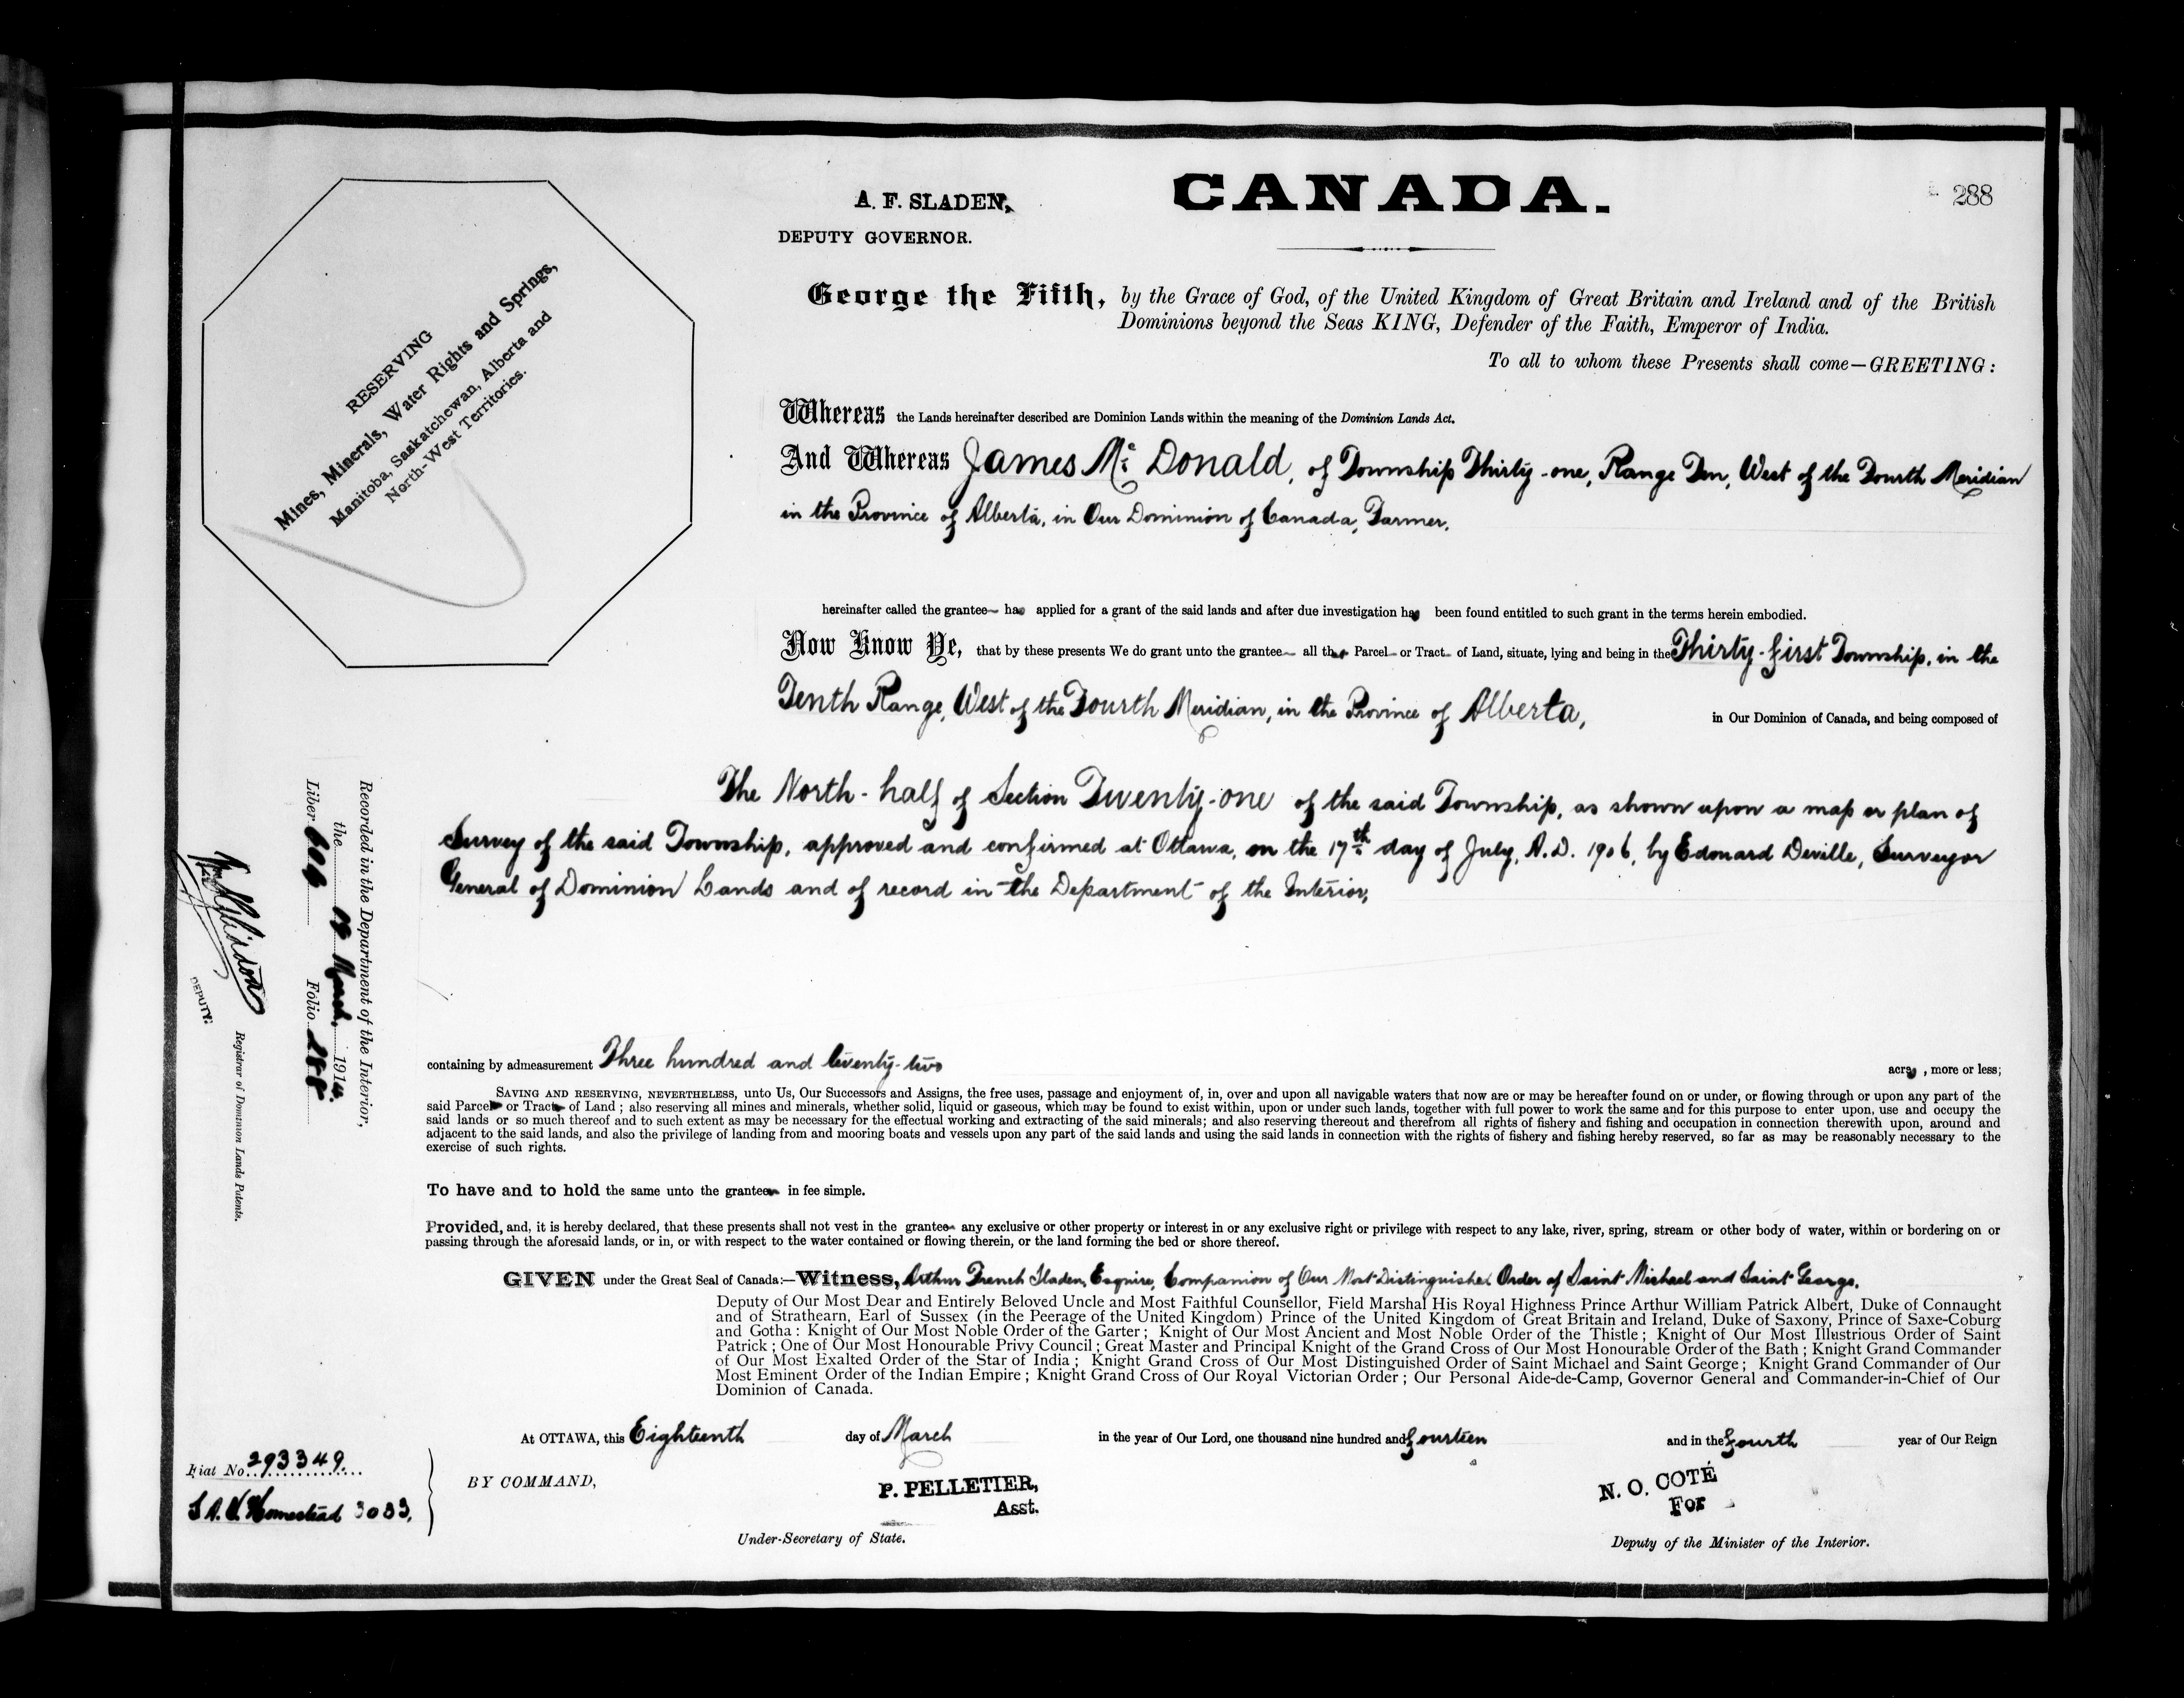 A. F. SLADEN,
DEPUTY GOVERNOR.
CANADA.
288
RESERVING
Mines, Minerals, Water Rights and Springs,
Manitoba, Saskatchewan, Alberta and
North-West Territories.
George the Fifth, by the Grace of God, of the United Kingdom of Great Britain and Ireland and of the British
Dominions beyond the Seas KING, Defender of the Faith, Emperor of India.
To all to whom these Presents shall come—GREETING:
Whereas the Lands hereinafter described are Dominion Lands within the meaning of the Dominion Lands Act.
And Whereas James Mc Donald, of Township Thirty-one, Range Ten, West of the Fourth Meridian
in the Province of Alberta, in Our Dominion of Canada, Farmer,
hereinafter called the grantee has applied for a grant of the said lands and after due investigation has been found entitled to such grant in the terms herein embodied.
Now Know Ye, that by these presents We do grant unto the grantee all that Parcel or Tract of Land, situate, lying and being in the Thirty-first Township, in the
Tenth Range, West of the Fourth Meridian, in the Province of Alberta, in Our Dominion of Canada, and being composed of
The North-half of Section Twenty-one of the said Township, as shown upon a map or plan of
Survey of the said Township, approved and confirmed at Ottawa, on the 17th day of July, A.D. 1906, by Edouard Deville, Surveyor
General of Dominion Lands and of record in the Department of the Interior,
containing by admeasurement Three hundred and twenty-two acres, more or less;
SAVING AND RESERVING, NEVERTHELESS, unto Us, Our Successors and Assigns, the free uses, passage and enjoyment of, in, over and upon all navigable waters that now are or may be hereafter found on or under, or flowing through or upon any part of the
said Parcel or Tract of Land; also reserving all mines and minerals, whether solid, liquid or gaseous, which may be found to exist within, upon or under such lands, together with full power to work the same and for this purpose to enter upon, use and occupy the
said lands or so much thereof and to such extent as may be necessary for the effectual working and extracting of the said minerals; and also reserving thereout and therefrom all rights of fishery and fishing and occupation in connection therewith upon, around and
adjacent to the said lands, and also the privilege of landing from and mooring boats and vessels upon any part of the said lands and using the said lands in connection with the rights of fishery and fishing hereby reserved, so far as may be reasonably necessary to the
exercise of such rights.
To have and to hold the same unto the grantee in fee simple.
Provided, and, it is hereby declared, that these presents shall not vest in the grantee any exclusive or other property or interest in or any exclusive right or privilege with respect to any lake, river, spring, stream or other body of water, within or bordering on or
passing through the aforesaid lands, or in, or with respect to the water contained or flowing therein, or the land forming the bed or shore thereof.
GIVEN under the Great Seal of Canada:—Witness, Arthur French Sladen, Esquire, Companion of Our Most Distinguished Order of Saint Michael and Saint George,
Deputy of Our Most Dear and Entirely Beloved Uncle and Most Faithful Counsellor, Field Marshal His Royal Highness Prince Arthur William Patrick Albert, Duke of Connaught
and of Strathearn, Earl of Sussex (in the Peerage of the United Kingdom) Prince of the United Kingdom of Great Britain and Ireland, Duke of Saxony, Prince of Saxe-Coburg
and Gotha: Knight of Our Most Noble Order of the Garter; Knight of Our Most Ancient and Most Noble Order of the Thistle; Knight of Our Most Illustrious Order of Saint
Patrick; One of Our Most Honourable Privy Council; Great Master and Principal Knight of the Grand Cross of Our Most Honourable Order of the Bath; Knight Grand Commander
of Our Most Exalted Order of the Star of India; Knight Grand Cross of Our Most Distinguished Order of Saint Michael and Saint George; Knight Grand Commander of Our
Most Eminent Order of the Indian Empire; Knight Grand Cross of Our Royal Victorian Order; Our Personal Aide-de-Camp, Governor General and Commander-in-Chief of Our
Dominion of Canada.
At OTTAWA, this Eighteenth day of March in the year of Our Lord, one thousand nine hundred and fourteen and in the fourth year of Our Reign
BY COMMAND,
P. PELLETIER,
Asst.
Under-Secretary of State.
N. O. COTÉ
For
Deputy of the Minister of the Interior.
Recorded in the Department of the Interior,
the March, 1914.
Liber Folio 288
DEPUTY.
Registrar of Dominion Lands Patents.
Fiat No. 293349.
S.A.V. Homestead 3033.